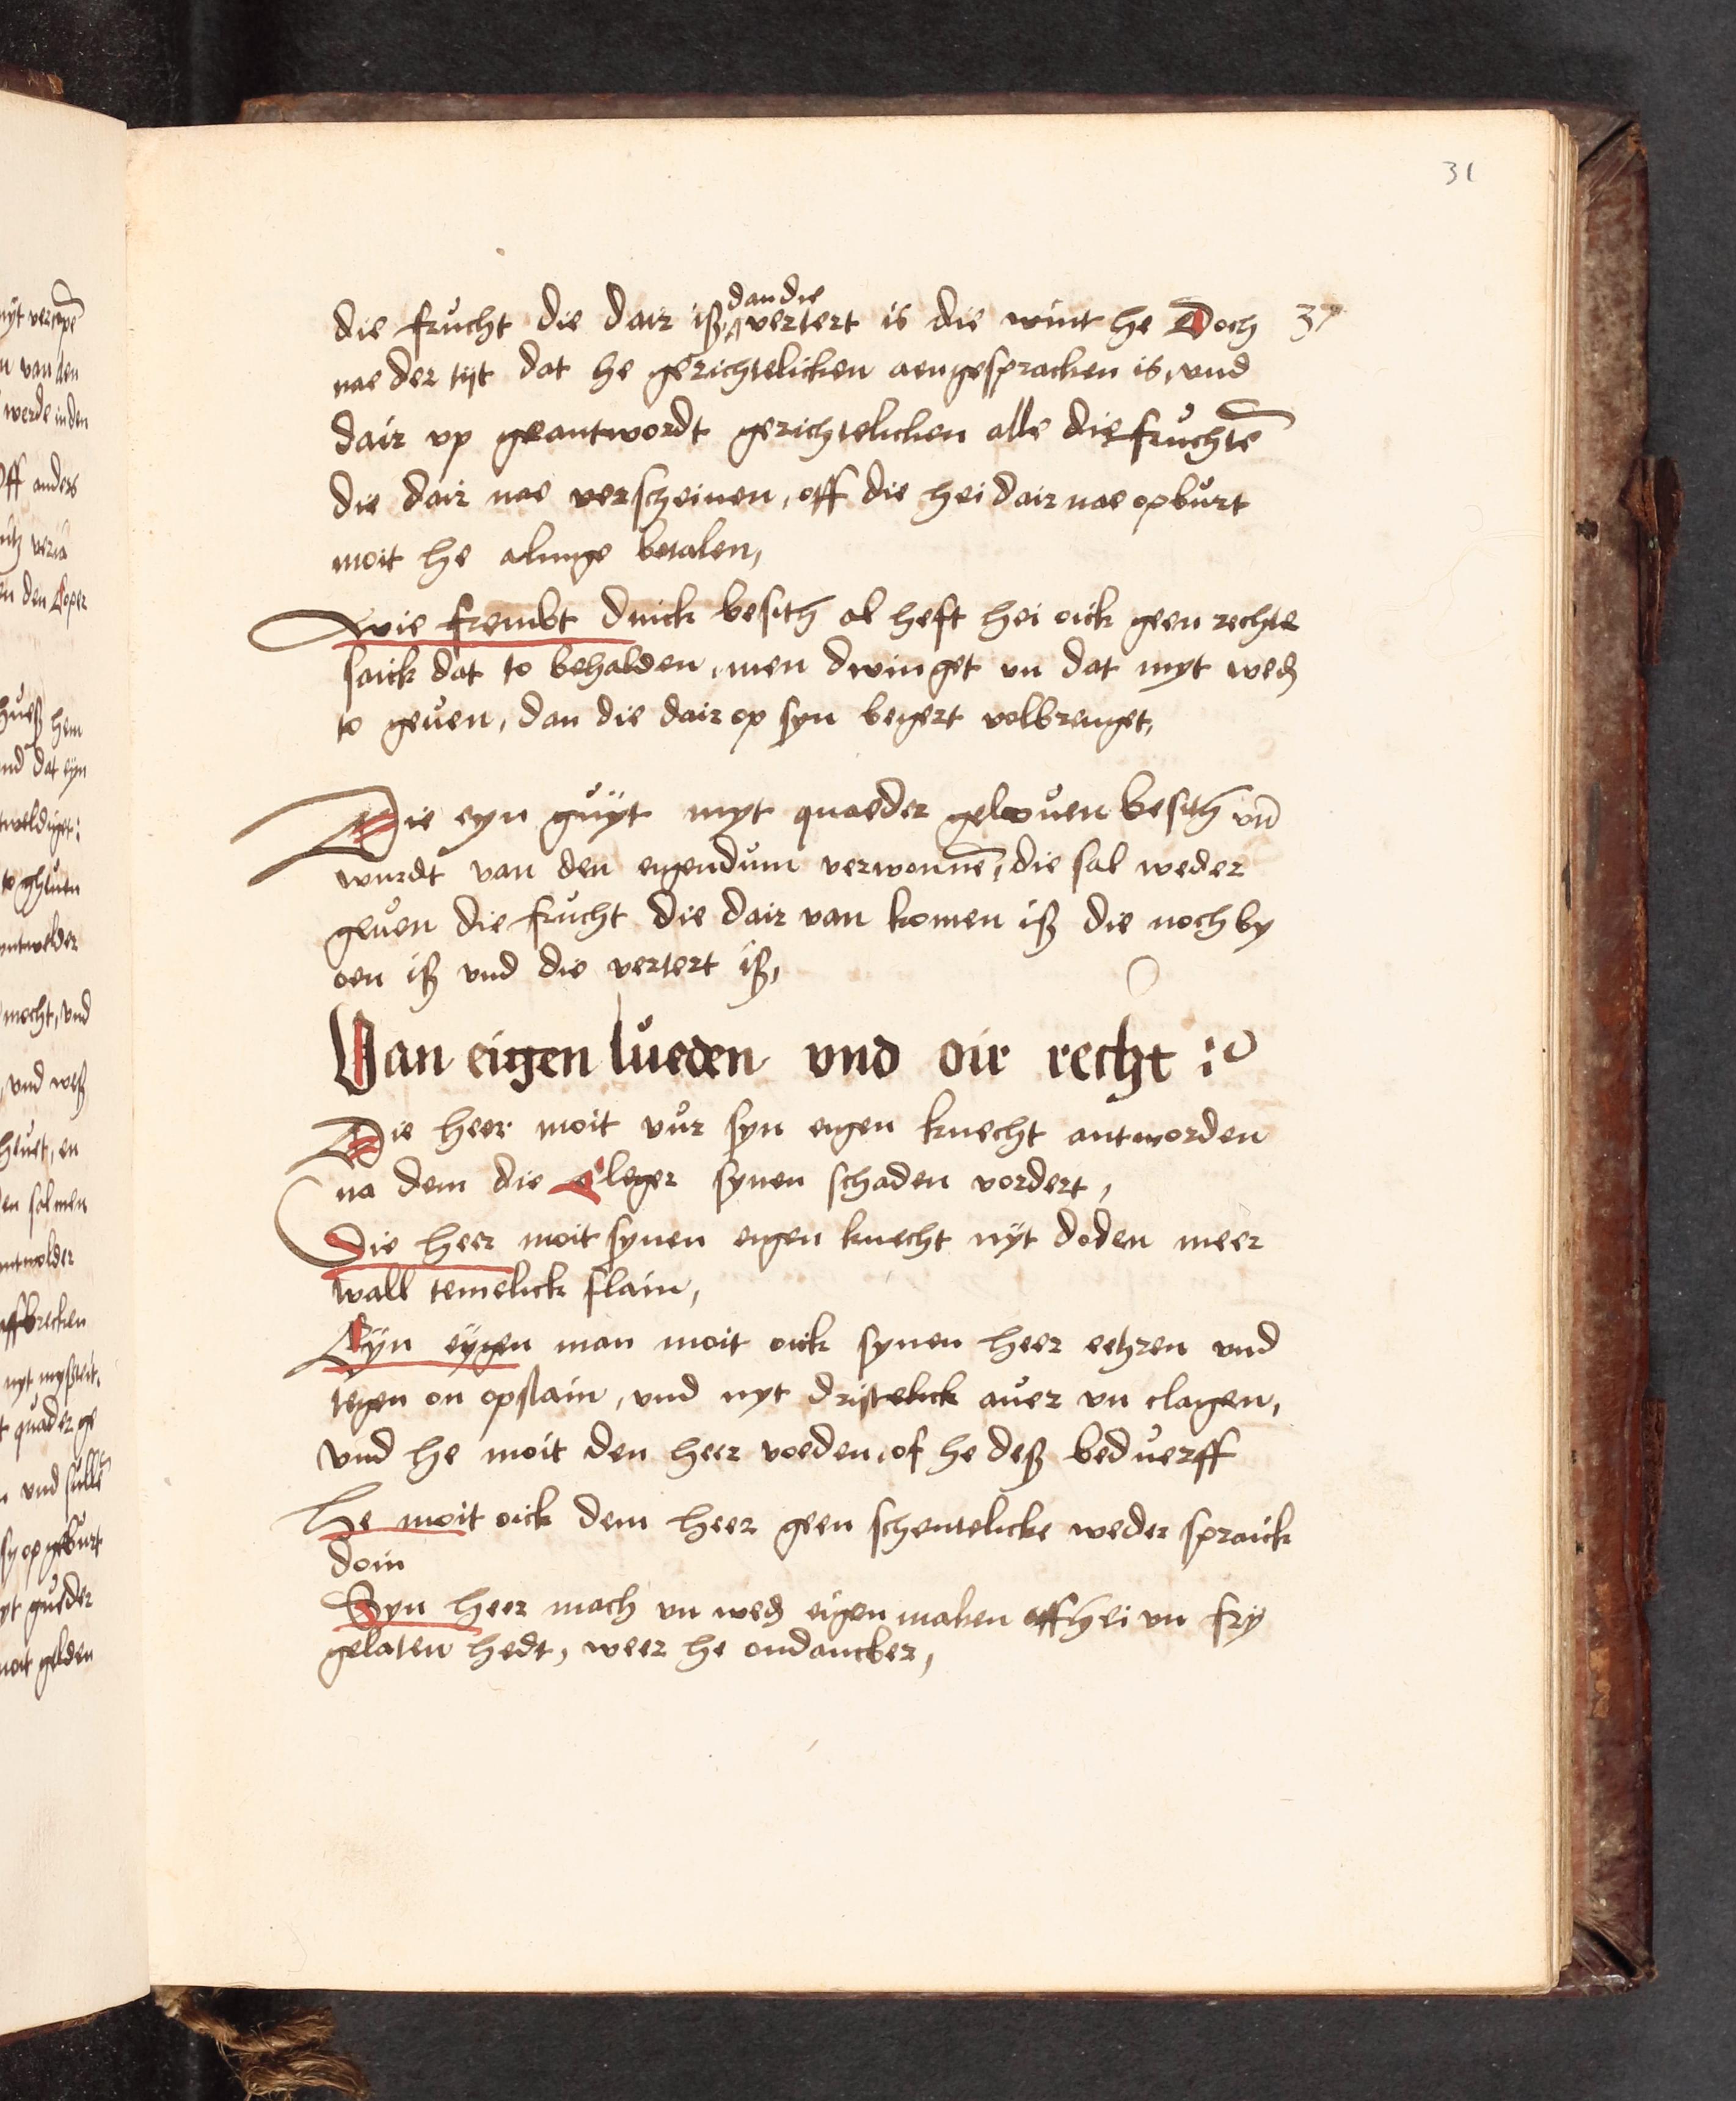 31
die frucht die dair iß, dan die vertert is die wint he Doch 37
nae der tijt dat he gerichtelicken aengespracken is, vnd
dair vp geantwordt gerichtelicken alle die fruchtē
die dair nae verscheinen, off die hei dair nae opburt
moit he alinge betalen,
Wie frembt dinck besith al heft hei oick geen rechte
saick dat to behalden, men dwinget vn dat myt wed
to geuen, dan die dair op syn begert volbrenget,
Die eyn guÿt myt quaeder gelouen besith vn̄
wurdt van den eigendum verwonnē, die sal weder
geuen die frucht die dair van komen iß die noch by
oen iß vnd die vertert iß,
Van eigen lueden vnd oir recht
Die heer moit vur syn eigen knecht antworden
na dem die cleger synen schaden vordert,
Die heer moit synen eigen knecht nÿt doden meer
wall temelick slain,
Eÿn eÿgen man moit oick synen heer eehren vnd
tegen on opstain, vnd nyt dristelick auer vn clagen,
vnd he moit den heer voeden, of he deß beduerff
He moit oick dem heer geen schentelicke weder spraick
doin
Syn heer mach vn wed eigen maken off hei vn fry
gelaten hedt, weer he ondancber,